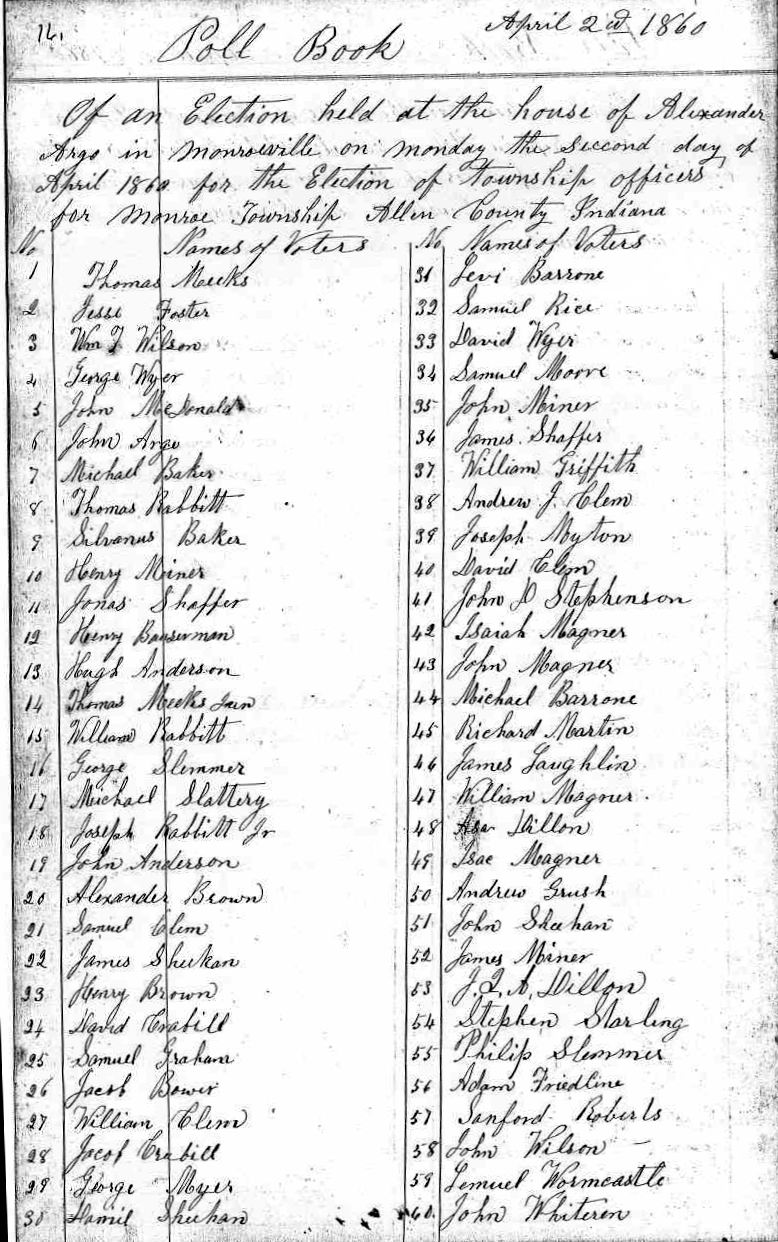 16.
April 2cd 1860
Poll Book
Of an Election held at the house of Alexander
Argo in Monroeville on Monday the second day of
April 1860 for the Election of Township officers
for Monroe Township Allen County Indiana
No Names of Voters
1 Thomas Meeks
2 Jesse Foster
3 Wm J Wilson
4 George Wyer
5 John McDonald
6 John Argo
7 Michael Baker
8 Thomas Rabbitt
9 Silvanus Baker
10 Henry Miner
11 Jonas Shaffer
12 Henry Bauserman
13 Hugh Anderson
14 Thomas Meeks Jun
15 William Rabbitt
16 George Slemmer
17 Michael Slattery
18 Joseph Rabbitt Jr
19 John Anderson
20 Alexander Brown
21 Samuel Clem
22 James Sheehan
23 Henry Brown
24 David Crabill
25 Samuel Graham
26 Jacob Bower
27 William Clem
28 Jacob Crabill
29 George Myer
30 Sheehan
No Names of Voters
31 Levi Barrone
32 Samuel Rice
33 David Wyer
34 Samuel Moore
35 John Miner
36 James Shaffer
37 William Griffith
38 Andrew J. Clem
39 Joseph Myton
40 David Clem
41 John D Stephenson
42 Isaiah Magner
43 John Magner
44 Michael Barrone
45 Richard Martin
46 James Laughlin
47 William Magner
48 Asa Dillon
49 Isac Magner
50 Andrew Grush
51 John Sheehan
52 James Miner
53 J. Q. A. Dillon
54 Stephen Starling
55 Philip Slemmer
56 Adam Friedline
57 Sanford Roberts
58 John Wilson
59 Lemuel Wormcastle
60 John Whiteren